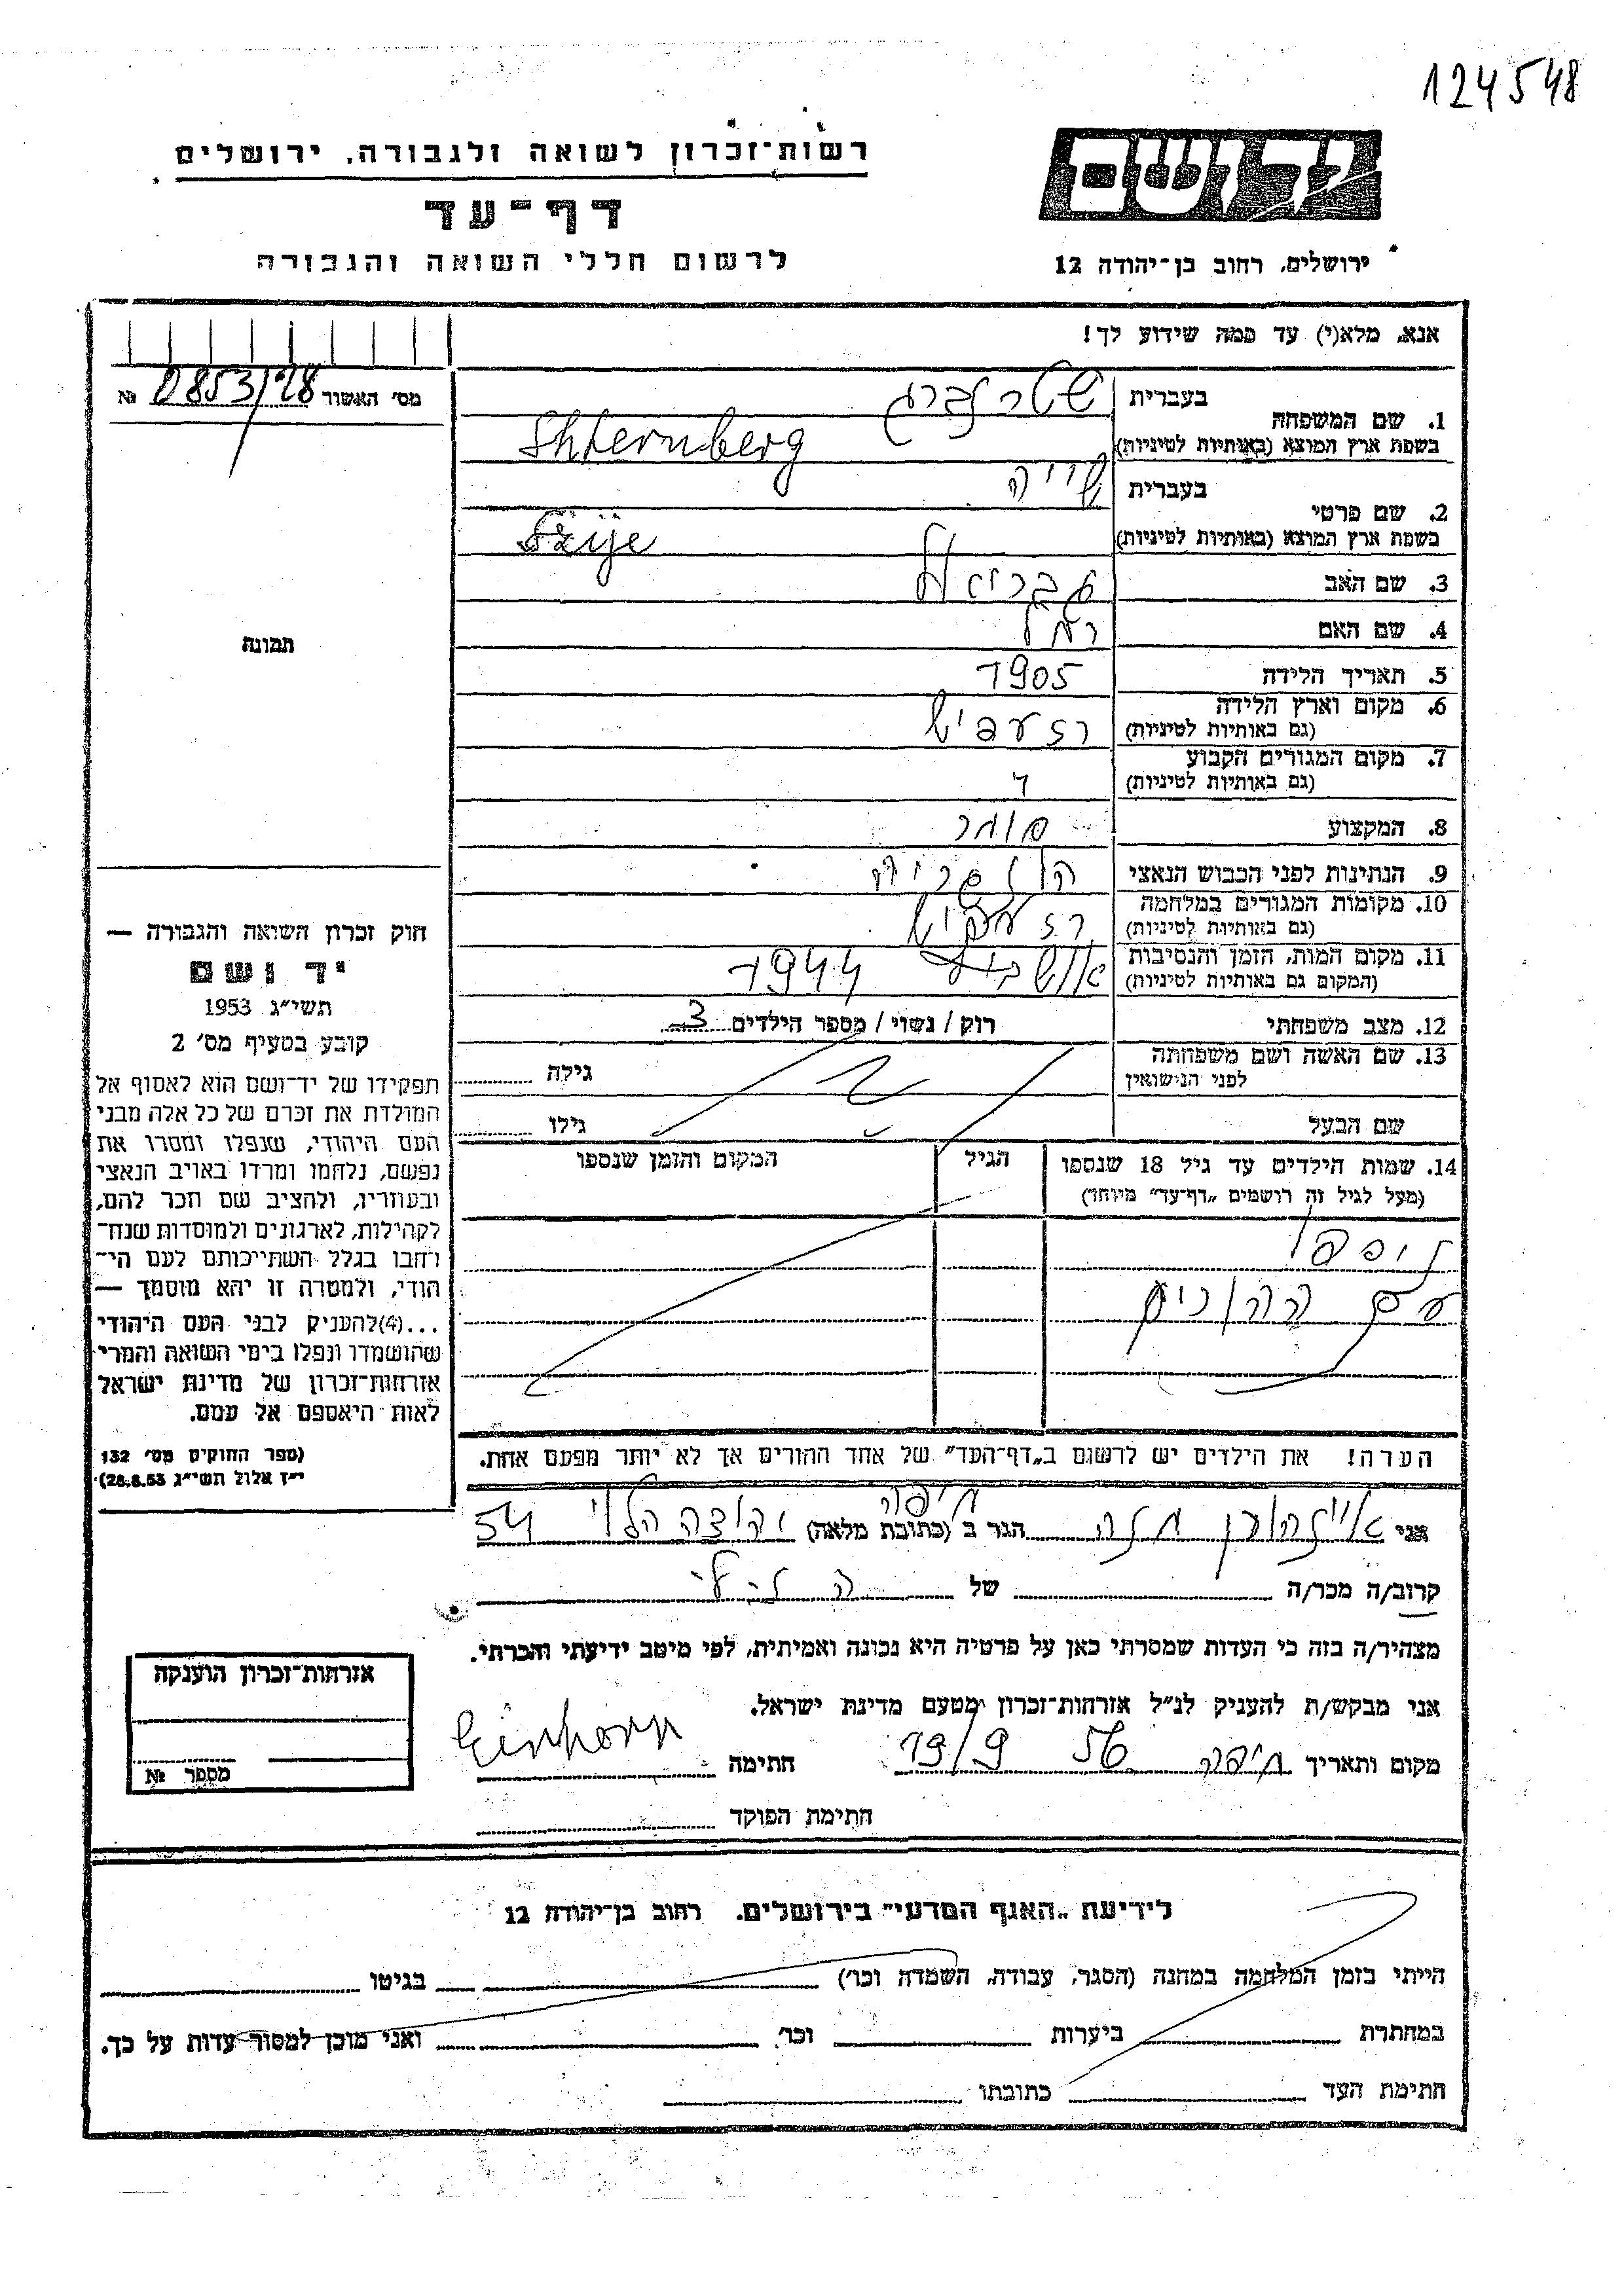 124548
רשות־זכרון לשואה ולגבורה, ירושלים
דף־עד
לרשום חללי השואה והגבורה
יד ושם
ירושלים, רחוב בן־יהודה 12
אנא, מלא(י) עד כמה שידוע לך!
מס' האשור №
1. שם המשפחה
בעברית שטרנברג
בשפת ארץ המוצא (באותיות לטיניות) Shternberg
2. שם פרטי
בעברית שייה
בשפת ארץ המוצא (באותיות לטיניות) Szije
3. שם האב גבריאל
4. שם האם רחל
5. תאריך הלידה 1905
6. מקום וארץ הלידה
(גם באותיות לטיניות)
7. מקום המגורים הקבוע
(גם באותיות לטיניות)
8. המקצוע סוחר
9. הנתינות לפני הכבוש הנאצי
10. מקומות המגורים במלחמה
(גם באותיות לטיניות)
11. מקום המות, הזמן והנסיבות 1944
(המקום גם באותיות לטיניות)
12. מצב משפחתי רוק / נשוי / מספר הילדים 3
13. שם האשה ושם משפחתה
לפני הנישואין גילה
שם הבעל גילו
14. שמות הילדים עד גיל 18 שנספו הגיל המקום והזמן שנספו
(מעל לגיל זה רושמים „דף־עד" מיוחד)
ניספו
עם ההורים
הערה! את הילדים יש לרשום ב„דף־העד" של אחד ההורים אך לא יותר מפעם אחת.
תמונה
חוק זכרון השואה והגבורה —
יד ושם
תשי"ג 1953
קובע בסעיף מס' 2
תפקידו של יד־ושם הוא לאסוף אל
המולדת את זכרם של כל אלה מבני
העם היהודי, שנפלו ומסרו את
נפשם, נלחמו ומרדו באויב הנאצי
ובעוזריו, ולהציב שם וזכר להם,
לקהילות, לארגונים ולמוסדות שנח־
רבו בגלל השתייכותם לעם הי־
הודי, ולמטרה זו יהא מוסמך —
...(4)להעניק לבני העם היהודי
שהושמדו ונפלו בימי השואה והמרי
אזרחות־זכרון של מדינת ישראל
לאות היאספם אל עמם.
(ספר החוקים מס' 132
י"ז אלול תשי"ג 28.8.53)
אני איינהורן חנה הגר ב (כתובת מלאה) חיפה יהודה הלוי 54
קרוב/ה מכר/ה של
מצהיר/ה בזה כי העדות שמסרתי כאן על פרטיה היא נכונה ואמיתית, לפי מיטב ידיעתי והכרתי.
אני מבקש/ת להעניק לנ"ל אזרחות־זכרון מטעם מדינת ישראל.
מקום ותאריך חיפה 19/9 56 חתימה Einhorn
חתימת הפוקד
אזרחות־זכרון הוענקה
מספר №
לידיעת „האגף המדעי" בירושלים. רחוב בן־יהודה 12
הייתי בזמן המלחמה במחנה (הסגר, עבודה, השמדה וכו') בגיטו
במחתרת ביערות וכו' ואני מוכן למסור עדות על כך.
חתימת העד כתובתו